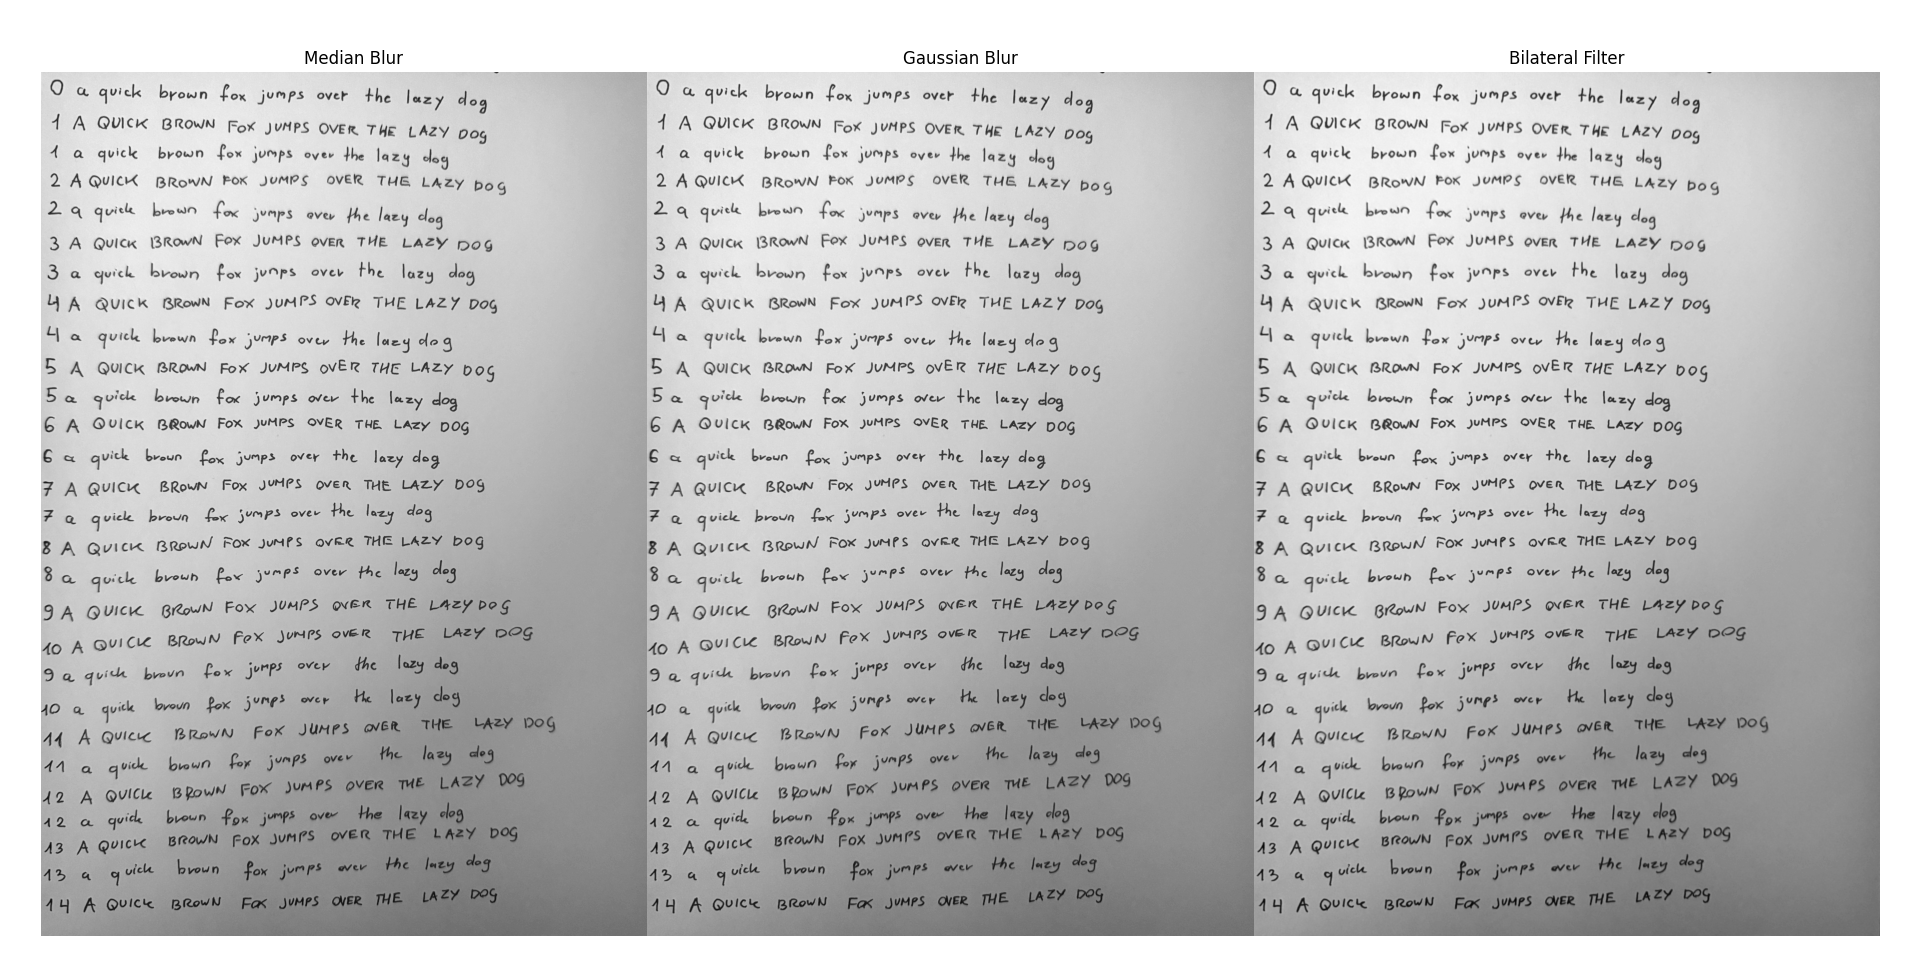 Median Blur
0 a quick brown fox jumps over the lazy dog
1 A QUICK BROWN FOX JUMPS OVER THE LAZY DOG
1 a quick brown fox jumps over the lazy dog
2 A QUICK BROWN FOX JUMPS OVER THE LAZY DOG
2 a quick brown fox jumps over the lazy dog
3 A QUICK BROWN FOX JUMPS OVER THE LAZY DOG
3 a quick brown fox jumps over the lazy dog
4 A QUICK BROWN FOX JUMPS OVER THE LAZY DOG
4 a quick brown fox jumps over the lazy dog
5 A QUICK BROWN FOX JUMPS OVER THE LAZY DOG
5 a quick brown fox jumps over the lazy dog
6 A QUICK BROWN FOX JUMPS OVER THE LAZY DOG
6 a quick brown fox jumps over the lazy dog
7 A QUICK BROWN FOX JUMPS OVER THE LAZY DOG
7 a quick brown fox jumps over the lazy dog
8 A QUICK BROWN FOX JUMPS OVER THE LAZY DOG
8 a quick brown fox jumps over the lazy dog
9 A QUICK BROWN FOX JUMPS OVER THE LAZY DOG
10 A QUICK BROWN FOX JUMPS OVER THE LAZY DOG
9 a quick brown fox jumps over the lazy dog
10 a quick brown fox jumps over the lazy dog
11 A QUICK BROWN FOX JUMPS OVER THE LAZY DOG
11 a quick brown fox jumps over the lazy dog
12 A QUICK BROWN FOX JUMPS OVER THE LAZY DOG
12 a quick brown fox jumps over the lazy dog
13 A QUICK BROWN FOX JUMPS OVER THE LAZY DOG
13 a quick brown fox jumps over the lazy dog
14 A QUICK BROWN FOX JUMPS OVER THE LAZY DOG
Gaussian Blur
0 a quick brown fox jumps over the lazy dog
1 A QUICK BROWN FOX JUMPS OVER THE LAZY DOG
1 a quick brown fox jumps over the lazy dog
2 A QUICK BROWN FOX JUMPS OVER THE LAZY DOG
2 a quick brown fox jumps over the lazy dog
3 A QUICK BROWN FOX JUMPS OVER THE LAZY DOG
3 a quick brown fox jumps over the lazy dog
4 A QUICK BROWN FOX JUMPS OVER THE LAZY DOG
4 a quick brown fox jumps over the lazy dog
5 A QUICK BROWN FOX JUMPS OVER THE LAZY DOG
5 a quick brown fox jumps over the lazy dog
6 A QUICK BROWN FOX JUMPS OVER THE LAZY DOG
6 a quick brown fox jumps over the lazy dog
7 A QUICK BROWN FOX JUMPS OVER THE LAZY DOG
7 a quick brown fox jumps over the lazy dog
8 A QUICK BROWN FOX JUMPS OVER THE LAZY DOG
8 a quick brown fox jumps over the lazy dog
9 A QUICK BROWN FOX JUMPS OVER THE LAZY DOG
10 A QUICK BROWN FOX JUMPS OVER THE LAZY DOG
9 a quick brown fox jumps over the lazy dog
10 a quick brown fox jumps over the lazy dog
11 A QUICK BROWN FOX JUMPS OVER THE LAZY DOG
11 a quick brown fox jumps over the lazy dog
12 A QUICK BROWN FOX JUMPS OVER THE LAZY DOG
12 a quick brown fox jumps over the lazy dog
13 A QUICK BROWN FOX JUMPS OVER THE LAZY DOG
13 a quick brown fox jumps over the lazy dog
14 A QUICK BROWN FOX JUMPS OVER THE LAZY DOG
Bilateral Filter
0 a quick brown fox jumps over the lazy dog
1 A QUICK BROWN FOX JUMPS OVER THE LAZY DOG
1 a quick brown fox jumps over the lazy dog
2 A QUICK BROWN FOX JUMPS OVER THE LAZY DOG
2 a quick brown fox jumps over the lazy dog
3 A QUICK BROWN FOX JUMPS OVER THE LAZY DOG
3 a quick brown fox jumps over the lazy dog
4 A QUICK BROWN FOX JUMPS OVER THE LAZY DOG
4 a quick brown fox jumps over the lazy dog
5 A QUICK BROWN FOX JUMPS OVER THE LAZY DOG
5 a quick brown fox jumps over the lazy dog
6 A QUICK BROWN FOX JUMPS OVER THE LAZY DOG
6 a quick brown fox jumps over the lazy dog
7 A QUICK BROWN FOX JUMPS OVER THE LAZY DOG
7 a quick brown fox jumps over the lazy dog
8 A QUICK BROWN FOX JUMPS OVER THE LAZY DOG
8 a quick brown fox jumps over the lazy dog
9 A QUICK BROWN FOX JUMPS OVER THE LAZY DOG
10 A QUICK BROWN FOX JUMPS OVER THE LAZY DOG
9 a quick brown fox jumps over the lazy dog
10 a quick brown fox jumps over the lazy dog
11 A QUICK BROWN FOX JUMPS OVER THE LAZY DOG
11 a quick brown fox jumps over the lazy dog
12 A QUICK BROWN FOX JUMPS OVER THE LAZY DOG
12 a quick brown fox jumps over the lazy dog
13 A QUICK BROWN FOX JUMPS OVER THE LAZY DOG
13 a quick brown fox jumps over the lazy dog
14 A QUICK BROWN FOX JUMPS OVER THE LAZY DOG